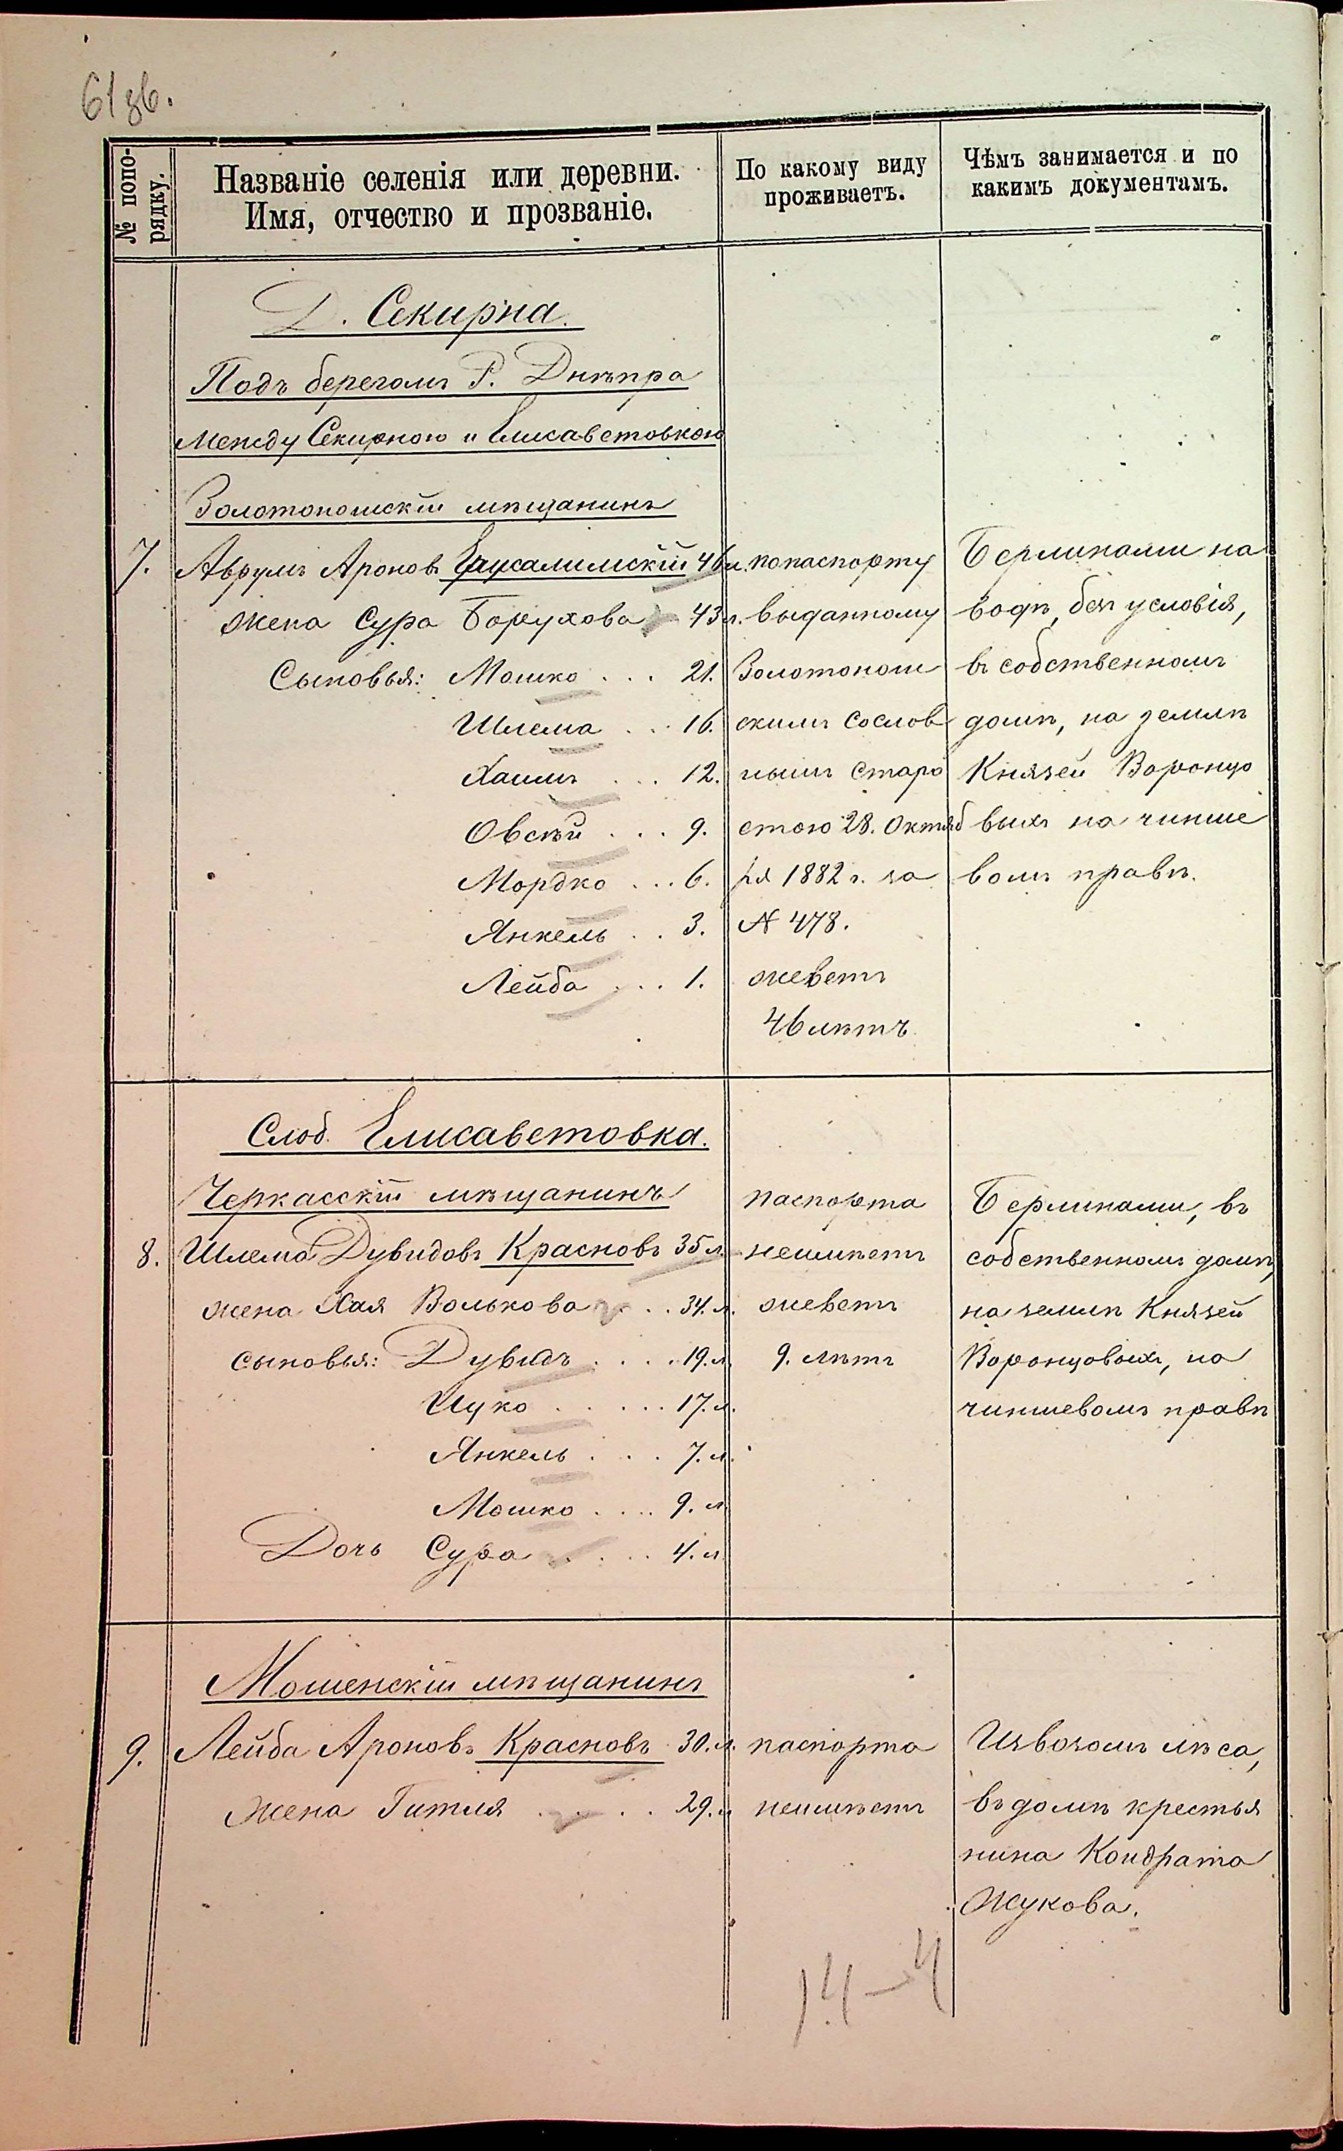 61 зв.
№ попо-
рядку.
Названіе селенія или деревни.
Имя, отчество и прозваніе.
По какому виду
проживаетъ.
Чѣмъ занимается и по
какимъ документамъ.
Д. Секирна.
Подъ берегомъ Р. Днѣпра
между Секирною и Елисаветовкою
Золотоношскій мѣщанинъ
7. Аврумъ Ароновъ Ерусалимскій 46 л.
жена Сура Борухова 43 л.
Сыновья: Мошко . . . 21.
Шлема . . 16.
Хаимъ . . . 12.
Овсѣй . . . 9.
Мордко . . . 6.
Янкель . . 3.
Лейба . . . 1.
по паспорту
выданному
Золотонош
скимъ сослов
нымъ старо
стою 28. Октяб
ря 1882 г. за
№ 478.
живетъ
46 лѣтъ
Берлинами на
водѣ, безъ условія,
въ собственномъ
домѣ, на землѣ
Князей Воронцо
выхъ на чинше
вомъ правѣ.
Слоб. Елисаветовка.
Черкасскій мѣщанинъ
8. Шлема Дувидовъ Красновъ 35 л.
жена Хая Волькова . . 34. л.
сыновья: Дувидъ . . . . 19. л.
Ицко . . . . . 17. л.
Янкель . . . 7. л.
Мошко . . . . 9. л.
Дочь Сура . . . . 4. л.
паспорта
неимѣетъ
живетъ
9. лѣтъ
Берлинами, въ
собственномъ домѣ,
на землѣ Князей
Воронцовыхъ, на
чиншевомъ правѣ
Мошенскій мѣщанинъ
9. Лейба Ароновъ Красновъ 30. л.
жена Гитля . . . . 29. л.
паспорта
неимѣетъ
Извозомъ лѣса,
въ домѣ крестья
нина Кондрата
Жукова.
14 – 4